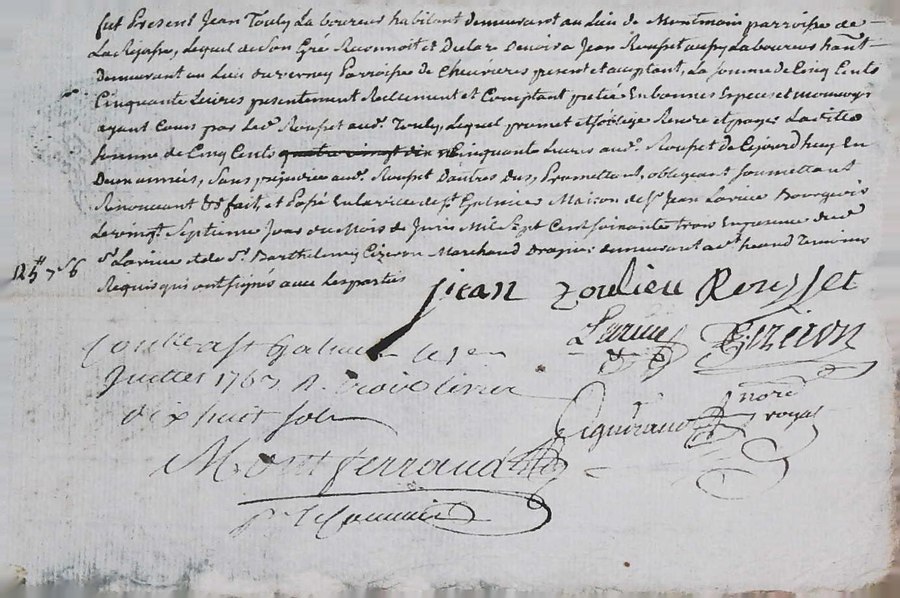 fut Present Jean Touly Laboureur habitant demeurant au Lieu de Montmain parroisse de
La Rajasse, Lequel de Son Gré Reconnoit et Declare Devoir a Jean Rousset aussy Laboureur hant
demeurant au Lieu du verney Parroisse de Chevrières present et acceptant, La somme de Cinq Cents
Cinquante Livres presentement Reellement et Comptant pretée En bonnes Especes et monnoys
ayant Cours par Led. Rousset aud. Touly, Lequel promet et s'oblige Rendre et payer Laditte
somme de Cinq Cents quatre vingt dix Cinquante Livres aud. Rousset de Cejourd'huy En
Deux années, Sans prejudice aud. Rousset D'autres dus, Promettant, obligeant soumettant
Renonceant &c fait, et Passé En la ville de St. Galmier Maison de Sr. Jean Lavieu Bourgeois
Le vingt Septieme Jour du Mois de Juin Mil Sept Cent Soixante trois En presence dud.
Sr. Lavieu et de Sr. Barthelemy Eizeron Marchand Drapier demeurant aud. Temoins
Requis qui ont signés avec Les parties
12 7 6
jean zoulieu Rousset
Lavieu Eizeron
Con St Galmier le 1er
Juillet 1763 R. trois livres
dix huit sols
notre
royal
Montferrand
pr le Commis